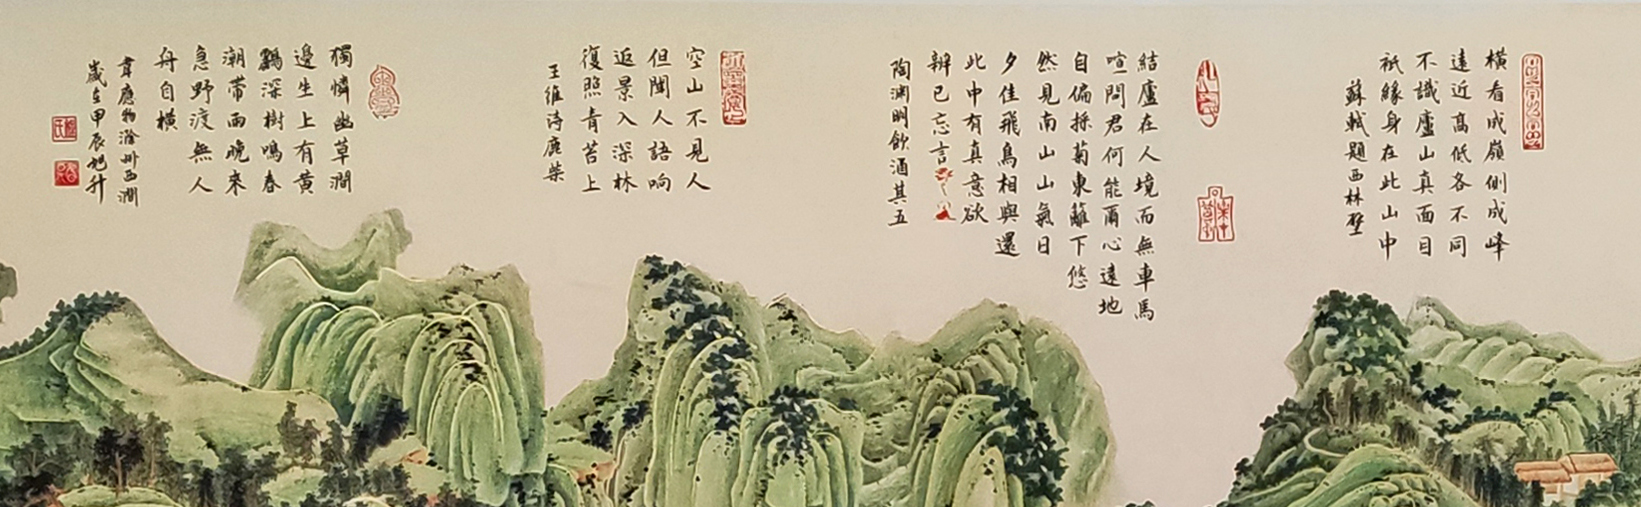 橫看成嶺側成峰
遠近高低各不同
不識廬山真面目
衹緣身在此山中
蘇軾題西林壁
結廬在人境而無車馬
喧問君何能爾心遠地
自偏採菊東籬下悠
然見南山山氣日
夕佳飛鳥相與還
此中有真意欲
辨已忘言
陶淵明飲酒其五
空山不見人
但聞人語响
返景入深林
復照青苔上
王維詩鹿柴
獨憐幽草澗
邊生上有黃
鸝深樹鳴春
潮帶雨晚來
急野渡無人
舟自橫
韋應物滁州西澗
歲在甲辰旭升